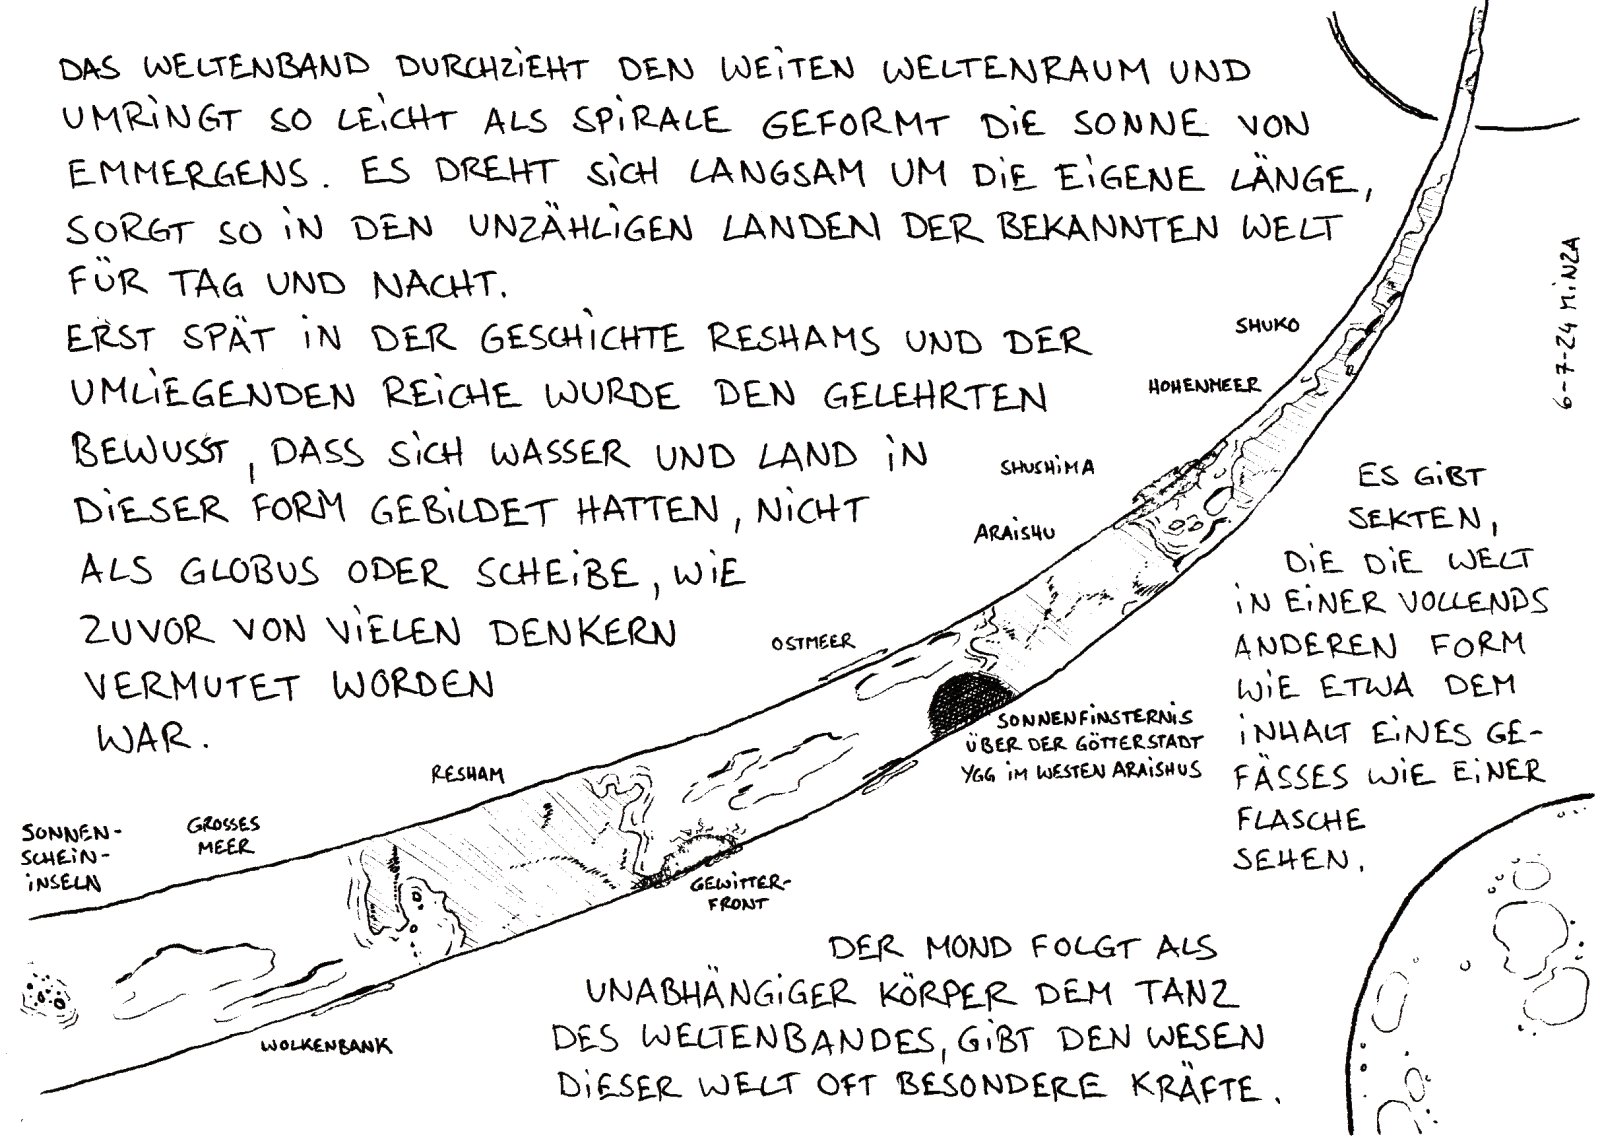 DAS WELTENBAND DURCHZIEHT DEN WEITEN WELTENRAUM UND
UMRINGT SO LEICHT ALS SPIRALE GEFORMT DIE SONNE VON
EMMERGENS. ES DREHT SICH LANGSAM UM DIE EIGENE LÄNGE,
SORGT SO IN DEN UNZÄHLIGEN LANDEN DER BEKANNTEN WELT
FÜR TAG UND NACHT.
ERST SPÄT IN DER GESCHICHTE RESHAMS UND DER
UMLIEGENDEN REICHE WURDE DEN GELEHRTEN
BEWUSST, DASS SICH WASSER UND LAND IN
DIESER FORM GEBILDET HATTEN, NICHT
ALS GLOBUS ODER SCHEIBE, WIE
ZUVOR VON VIELEN DENKERN
VERMUTET WORDEN
WAR.
SHUKO
HOHENMEER
SHUSHIMA
ARAISHU
OSTMEER
SONNENFINSTERNIS
ÜBER DER GÖTTERSTADT
YGG IM WESTEN ARAISHUS
RESHAM
GEWITTER-
FRONT
GROSSES
MEER
SONNEN-
SCHEIN-
INSELN
WOLKENBANK
6-7-24 MINZA
ES GIBT
SEKTEN,
DIE DIE WELT
IN EINER VOLLENDS
ANDEREN FORM
WIE ETWA DEM
INHALT EINES GE-
FÄSSES WIE EINER
FLASCHE
SEHEN.
DER MOND FOLGT ALS
UNABHÄNGIGER KÖRPER DEM TANZ
DES WELTENBANDES, GIBT DEN WESEN
DIESER WELT OFT BESONDERE KRÄFTE.